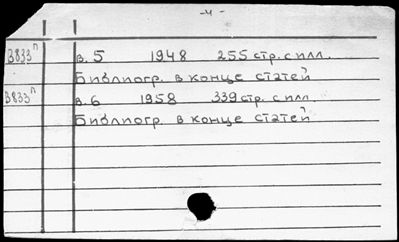 -4-
В833п в. 5 1948 255 стр. с илл.
Библиогр. в конце статей
В833п в. 6 1958 339 стр. с илл.
Библиогр. в конце статей